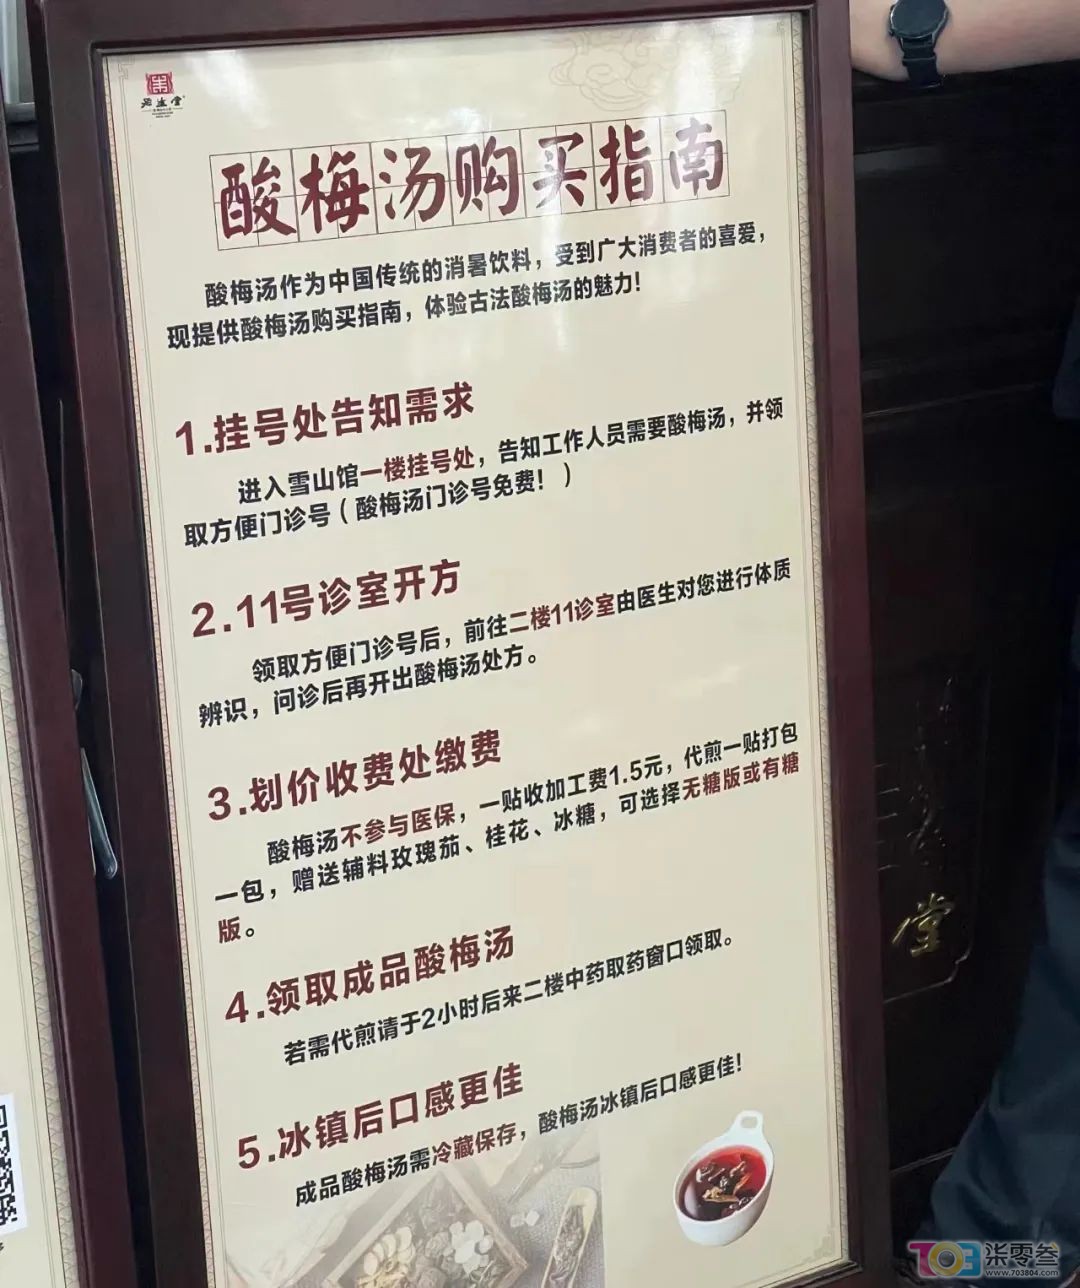 酸梅汤购买指南
酸梅汤作为中国传统的消暑饮料，受到广大消费者的喜爱，
现提供酸梅汤购买指南，体验古法酸梅汤的魅力！
1.挂号处告知需求
进入雪山馆一楼挂号处，告知工作人员需要酸梅汤，并领
取方便门诊号（酸梅汤门诊号免费！）
2.11号诊室开方
领取方便门诊号后，前往二楼11诊室由医生对您进行体质
辨识，问诊后再开出酸梅汤处方。
3.划价收费处缴费
酸梅汤不参与医保，一贴收加工费1.5元，代煎一贴打包
一包，赠送辅料玫瑰茄、桂花、冰糖，可选择无糖版或有糖
版。
4.领取成品酸梅汤
若需代煎请于2小时后来二楼中药取药窗口领取。
5.冰镇后口感更佳
成品酸梅汤需冷藏保存，酸梅汤冰镇后口感更佳！
堂
703 柒零叁
www.703804.com